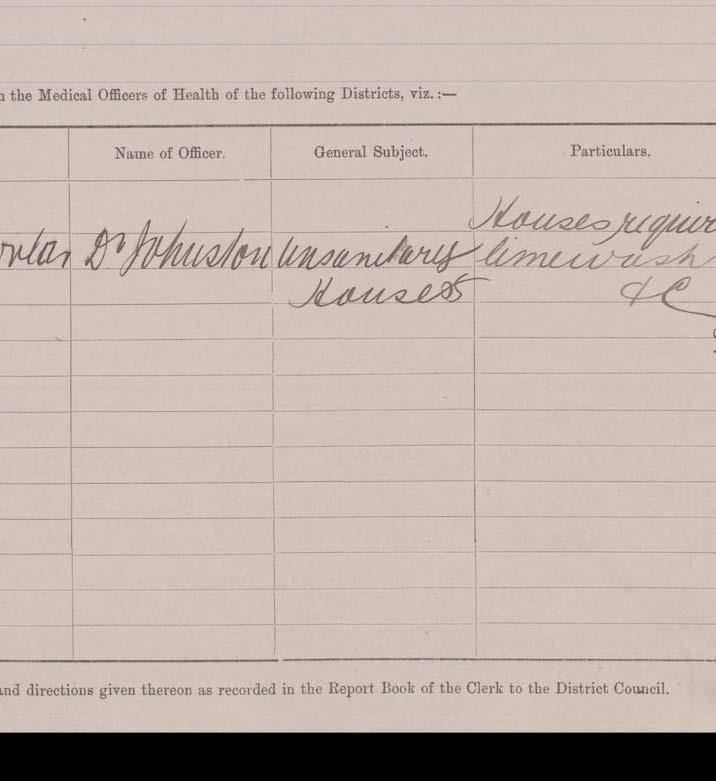 the Medical Officers of Health of the following Districts, viz.:—
Name of Officer. General Subject. Particulars.
Houses requir
Dr Johnston Unsanitary limewash
Houses &C
and directions given thereon as recorded in the Report Book of the Clerk to the District Council.